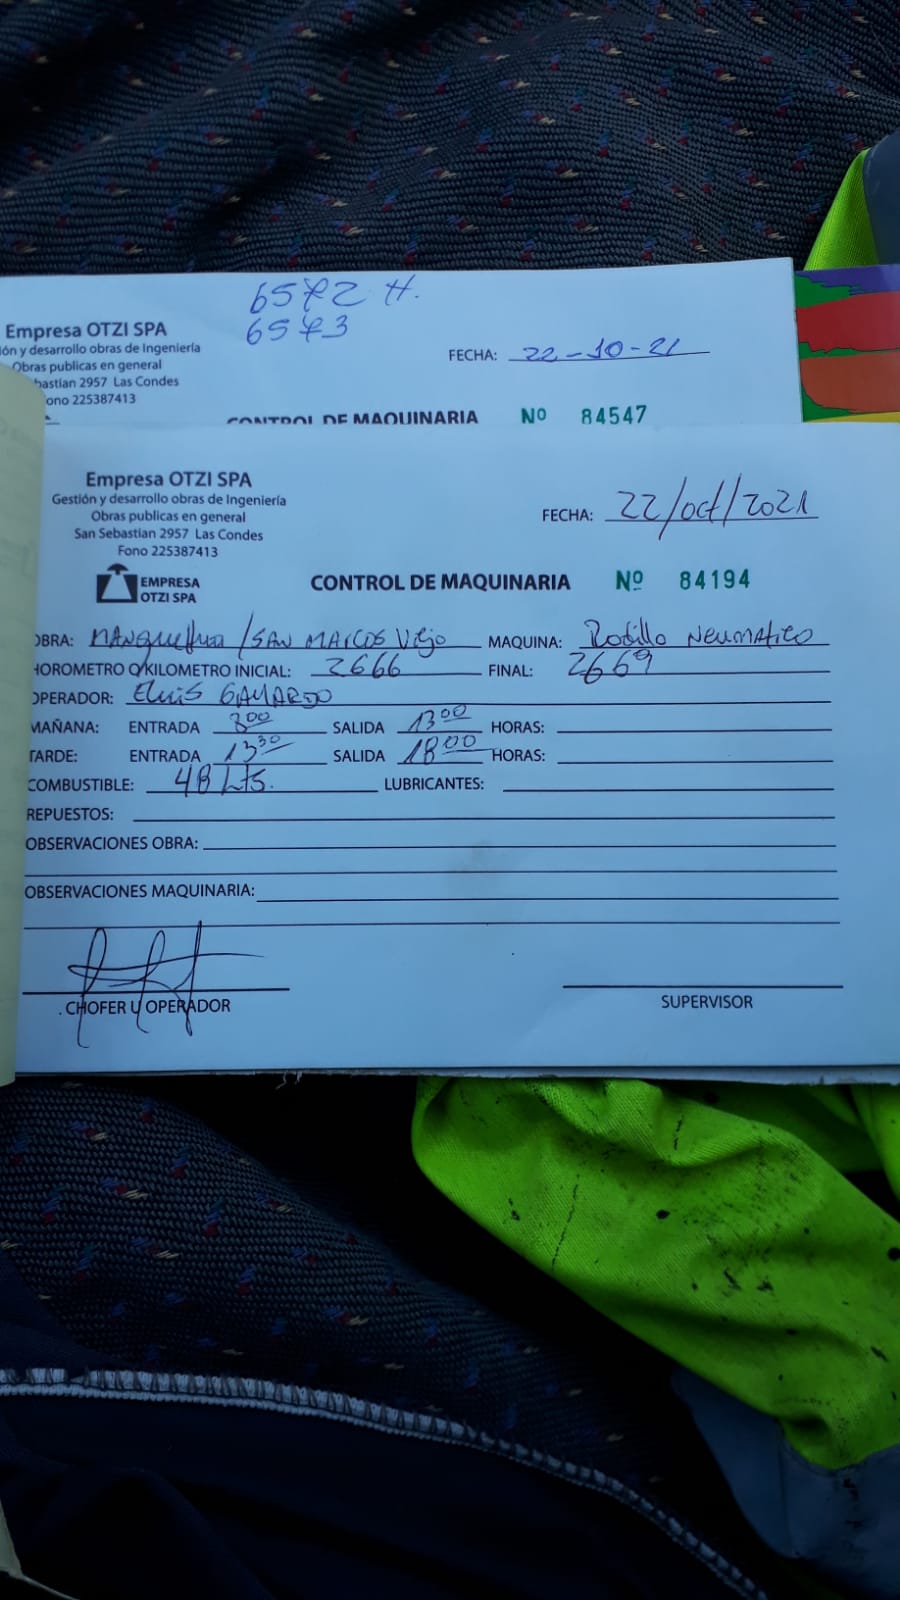 6572 H.
6573
Empresa OTZI SPA
ón y desarrollo obras de Ingeniería
Obras publicas en general
bastian 2957 Las Condes
ono 225387413
FECHA: 22-10-21
CONTROL DE MAQUINARIA Nº 84547
Empresa OTZI SPA
Gestión y desarrollo obras de Ingeniería
Obras publicas en general
San Sebastian 2957 Las Condes
Fono 225387413
FECHA: 22/oct/2021
EMPRESA
OTZI SPA
CONTROL DE MAQUINARIA Nº 84194
OBRA: /SAN MARCOS Viejo MAQUINA: Rodillo Neumatico
HOROMETRO O KILOMETRO INICIAL: 2666 FINAL: 2669
OPERADOR: GAllARDO
MAÑANA: ENTRADA 800 SALIDA 1300 HORAS:
TARDE: ENTRADA 1330 SALIDA 1800 HORAS:
COMBUSTIBLE: 48 Lts. LUBRICANTES:
REPUESTOS:
OBSERVACIONES OBRA:
OBSERVACIONES MAQUINARIA:
. CHOFER U OPERADOR
SUPERVISOR